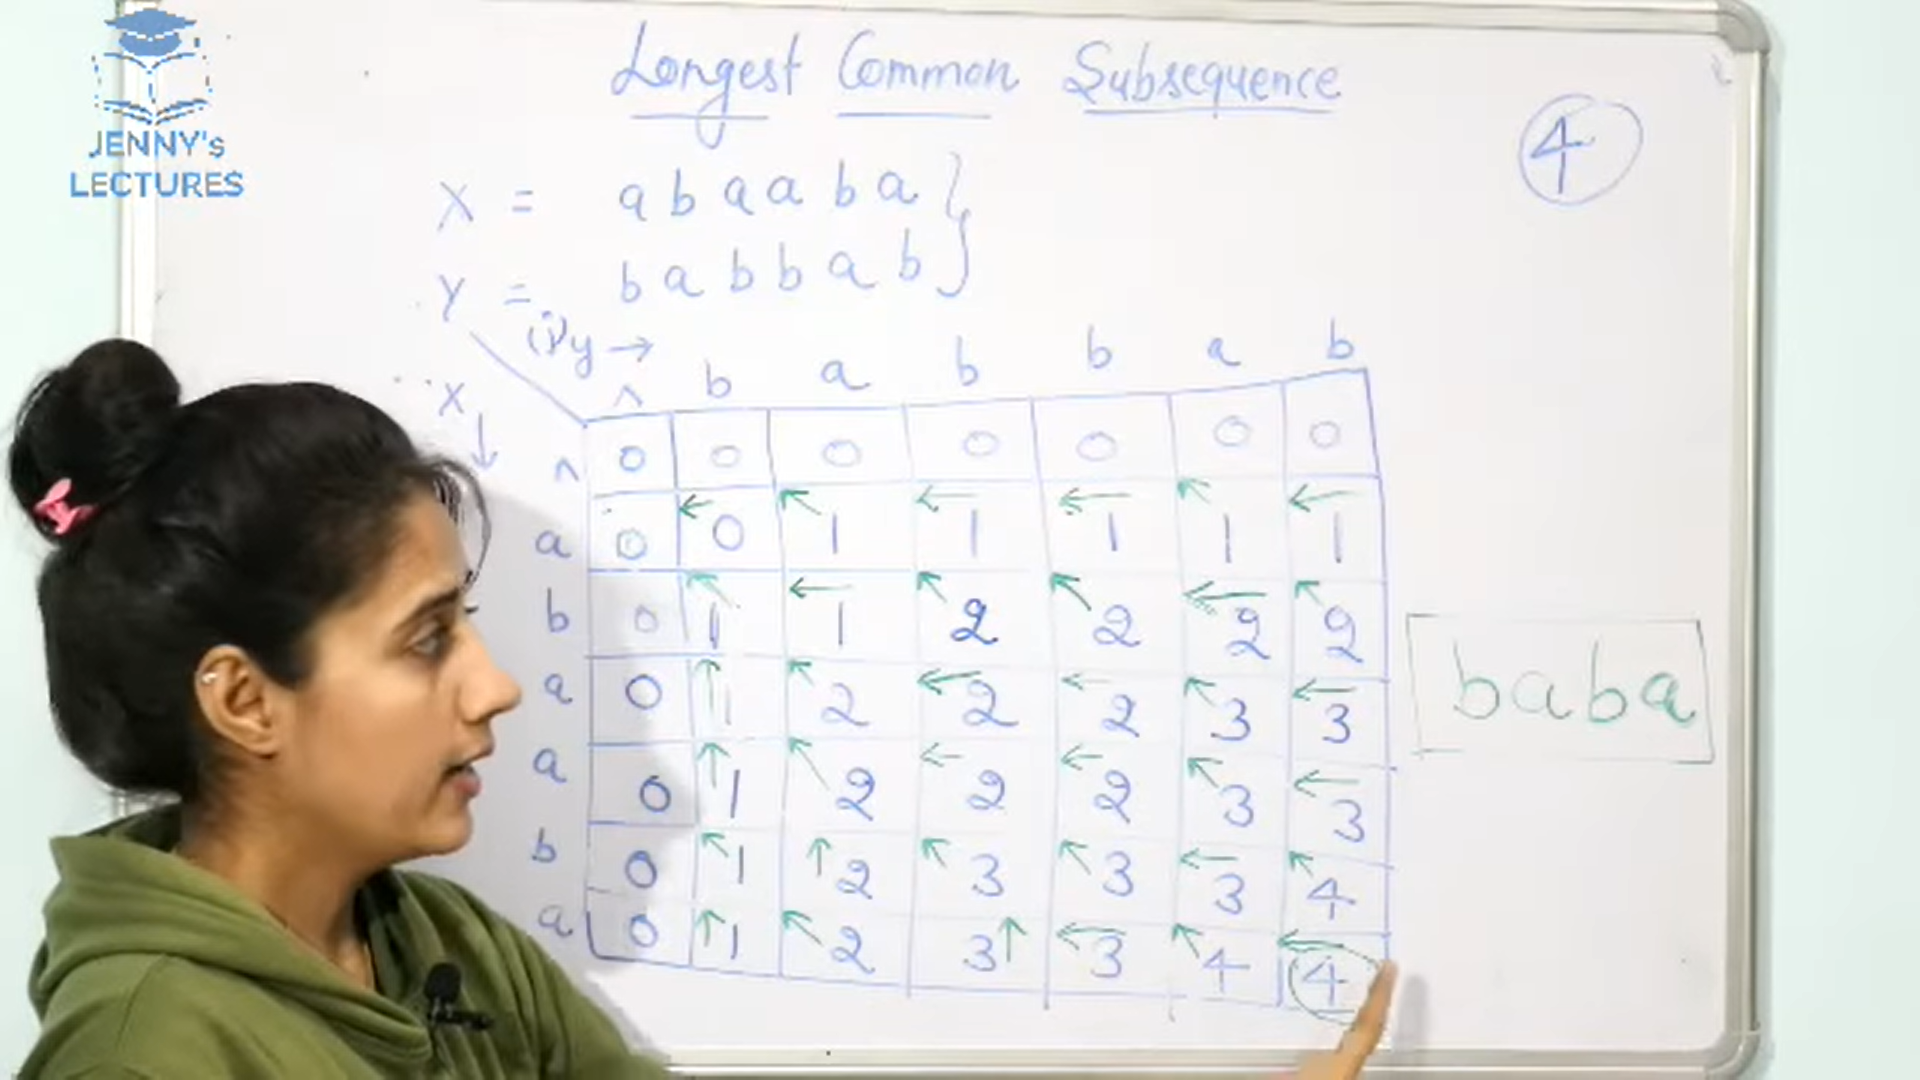 JENNY's
LECTURES
Longest Common Subsequence
4
X = a b a a b a }
Y = b a b b a b }
(i) y →
x ↓
^ b a b b a b
^ 0 0 0 0 0 0 0
a 0 ← 0 ↖ 1 ← 1 ← 1 ↖ 1 ← 1
b 0 ↖ 1 ← 1 ↖ 2 ↖ 2 ← 2 ↖ 2
a 0 ↑ 1 ↖ 2 ← 2 ← 2 ↖ 3 ← 3
a 0 ↑ 1 ↖ 2 ← 2 ← 2 ↖ 3 ← 3
b 0 ↖ 1 ↑ 2 ↖ 3 ↖ 3 ← 3 ↖ 4
a 0 ↑ 1 ↖ 2 3 ↑ ← 3 ↖ 4 ← 4
baba